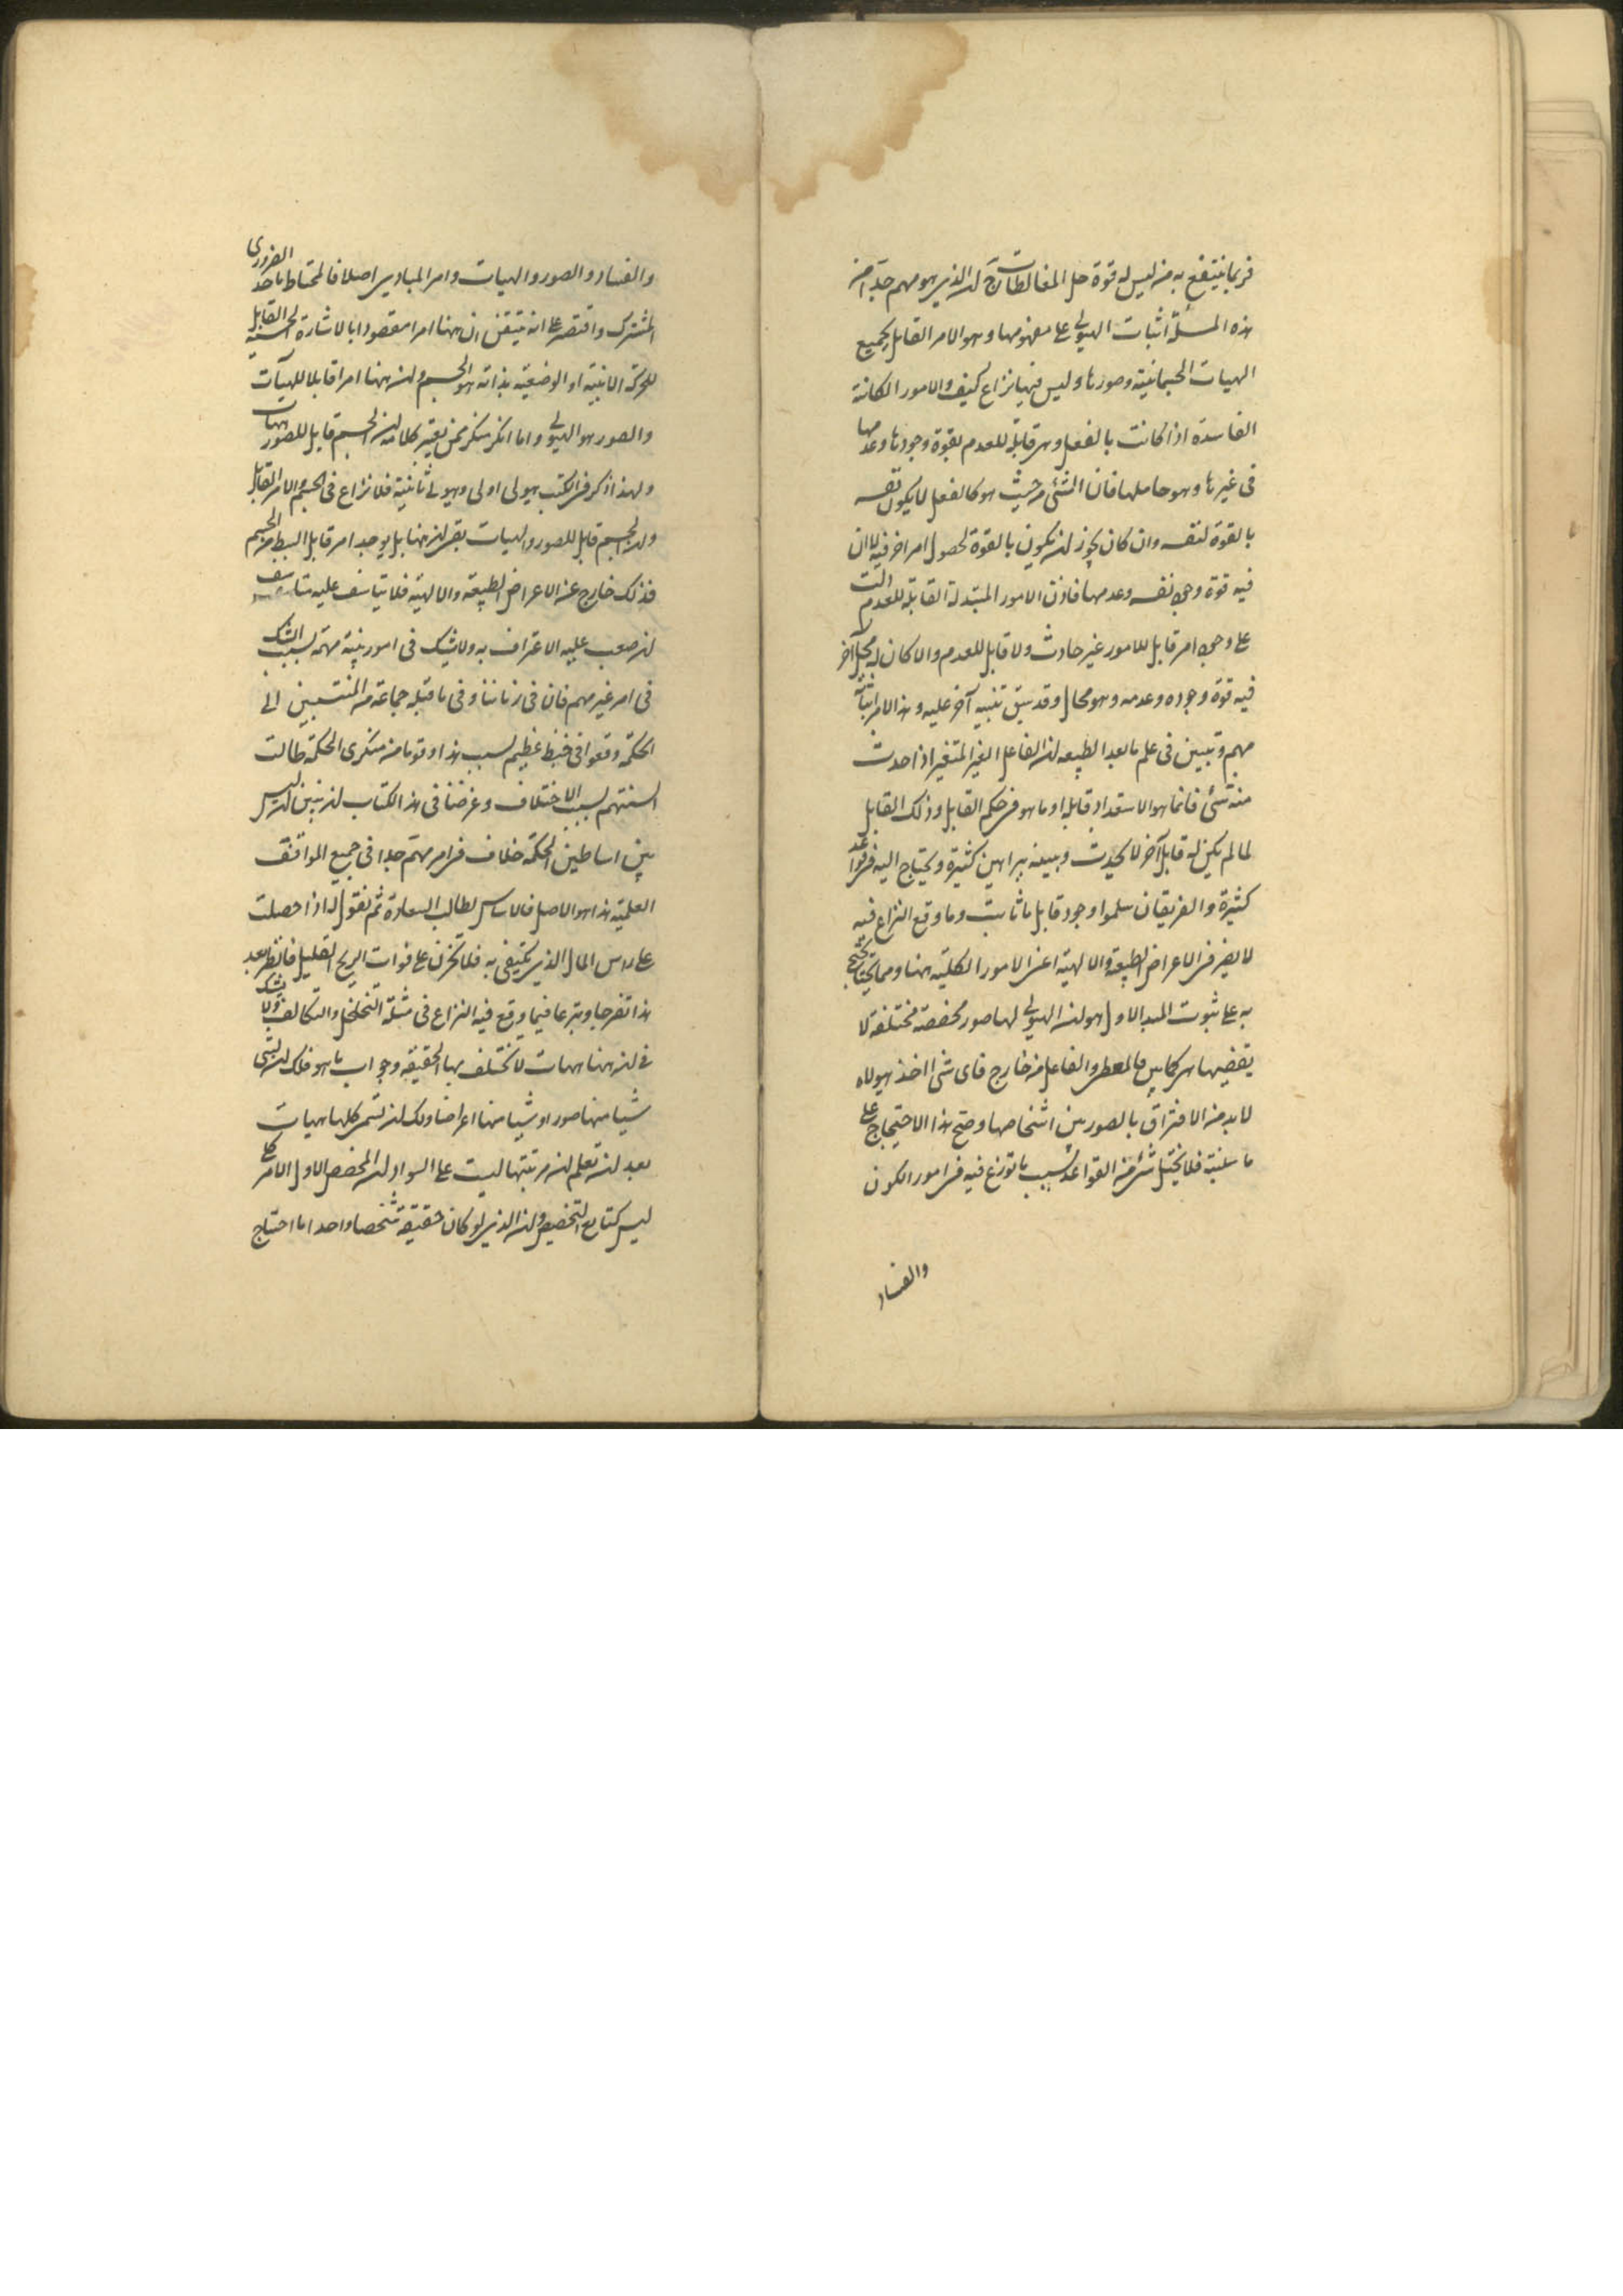 فربما ينتفع به من ليس له قوة حل المغالطات ج ان الذي هو مهم جدا من
هذه المسئلة اثبات الهيولى على مفهومها وهو الامر القابل لجميع
الهيات الجسمانية وصورها وليس فيها نزاع كيف والامور الكائنة
الفاسدة اذا كانت بالفعل وهي قابلة للعدم بقوة وجودها وعدمها
فى غيرها وهو حاملها فان الشئ من حيث هو كالفعل لا يكون نفسه
بالقوة لنفسه وان كان يجوز ان يكون بالقوة لحصول امر اخر فيه لا ان
فيه قوة وجود نفسه وعدمها فاذن الامور المتبدلة القابلة للعدم دالت
على وجود امر قابل للامور غير حادث ولا قابل للعدم والا كان له محل آخر
فيه قوة وجوده وعدمه وهو محال وقد سبق تنبيه آخر عليه وهذا الامر اثباته
مهم وتبين فى علم ما بعد الطبيعه ان الفاعل الغير المتغير اذا حدث
منه شئ فانما هو لاستعداد قابله او ما هو فى حكم القابل وذلك القابل
لما لم يكن له قابل آخر لا يحدث وبينه ببراهين كثيرة ويحتاج اليه فى قواعد
كثيرة والفريقان سلموا وجود قابل ما ثابت وما وقع النزاع فيه
لا يضر فى الاعراض الطبيعة والالهية اعنى الامور الكلية ههنا ومما يحتج
به على ثبوت المبدا الاول هو ان الهيولى لها صور مخصصة مختلفة لا
يقتضيها هى كما بين فالمعطى والفاعل من خارج فاى شئ اخذ هيولاه
لا بد من الافتراق بالصور بين اشخاصها وصح هذا الاحتجاج على
ما سلبته فلا يختل شئ من القواعد بسبب ما توزع فيه فى امور الكون
والفساد
والفساد والصور والهيات وامر المبادى اصلا فالمحتاط ياخذ الضرورى
المشترك واقتصر على انه يتيقن ان ههنا امرا مقصودا بالاشارة الحسية القابل
للحركة الاينية او الوضعية بذاته هو الجسم وان ههنا امرا قابلا للهيآت
والصور هو الهيولى واما انكر منكر فمن يغير كلامه ان الجسم قابل للصور والهيات
ولهذا ذكر فى الكتب هيولى اولى وهيولى ثانية فلا نزاع فى الجسم والامر القابل
وان الجسم قابل للصور والهيات بقى ان ههنا هل يوجد امر قابل ابسط من الجسم
فذلك خارج عن الاعراض الطبيعة والالهية فلا يتاسف عليه متاسف
ان صعب عليه الاعتراف به ولا يشك فى امور بينة مهمة بسبب الشك
فى امر غير مهم فان فى زماننا وفى ما قبله جماعة من المنتسبين الى
الحكمة وقعوا فى خبط عظيم بسبب هذا وقوما من منكرى الحكمة طالت
السنتهم بسبب الاختلاف وغرضنا فى هذا الكتاب ان نبين ان ليس
بين اساطين الحكمة خلاف فى امر مهم جدا فى جميع المواقف
العلمية هذا هو الاصل فالاساس لطالب السعادة ثم نقول له اذا حصلت
على راس المال الذى يكتفى به فلا تحزن على فوات الربح القليل فانظر بعد
هذا تفرجا وتبرعا فيما وقع فيه النزاع فى مسئلة التخلخل والتكاثف ولا يشك
فى ان ههنا هيات لا تختلف بها الحقيقه وجواب ما هو فلك ان لا تسمى
شيا منها صورا وشيا منها اعراضا ولك ان تسمى كلها هيات
بعد ان تعلم ان مرتبتها ليست على السواء وان المخصص الاول الامر كا
ليس كتابع التخصيص وان الذى لو كان حقيقة شخصا واحدا ما احتاج